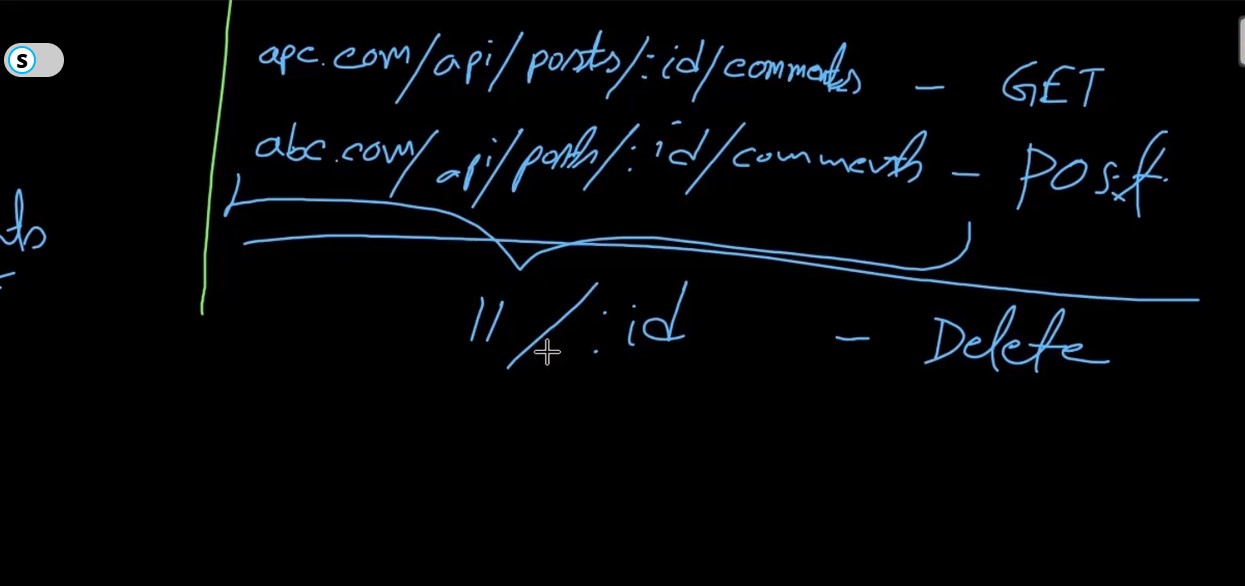 S
apc.com/api/posts/:id/comments - GET
abc.com/api/posts/:id/comments - POST
" /:id - Delete